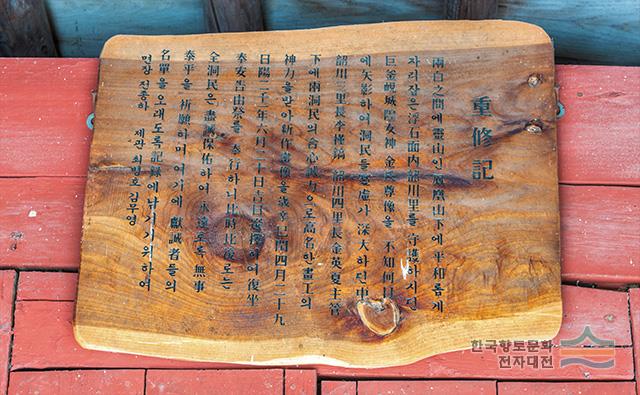 重修記
兩白之間에 靈山인 鳳凰山下에 平和롭게
자리잡은 浮石面內 韶川里를 守護하시던
巨釜峴城隍女神金氏尊像을 不知何日
에 失影하여 洞民들 憂慮가 深大하던 中
韶川一里長李 韶川四里長金英夏主管
下에 兩洞民의 合心誠力으로 高名한 畫工의
神力을 받아 新作畫像을 歲辛巳閏四月二十九
日陽二千一年六月二十日吉日 하여 復坐
奉安告由祭를 奉行하니 此時比後로는
全洞民은 盡誠保佑하여 永遠토록 無事
泰平을 祈願하며 여기에 獻誠者들의
名單을 오래도록 記錄에 남기기 위하여
면장 전종하 제관 최병호 김무영
한국향토문화
전자대전